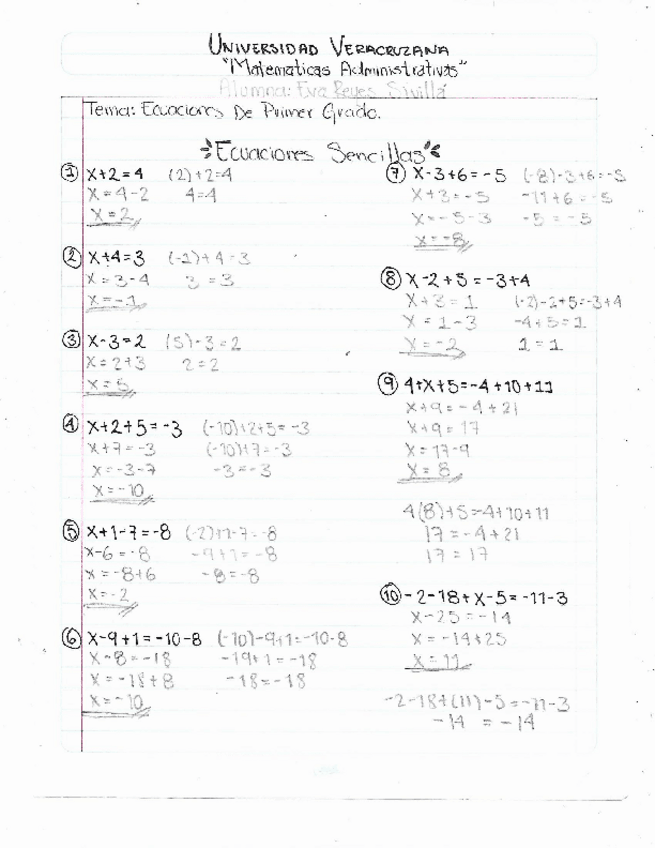 UNIVERSIDAD VERACRUZANA
"Matematicas Administrativas"
Alumna: Eva Reyes Sivilla
Tema: Ecuaciones De Primer Grado.
Ecuaciones Sencillas
① x+2=4 (2)+2=4
x=4-2 4=4
x=2
② x+4=3 (-1)+4=3
x=3-4 3=3
x=-1
③ x-3=2 (5)-3=2
x=2+3 2=2
x=5
④ x+2+5=-3 (-10)+2+5=-3
x+7=-3 (-10)+7=-3
x=-3-7 -3=-3
x=-10
⑤ x+1-7=-8 (-2)+1-7=-8
x-6=-8 -9+1=-8
x=-8+6 -8=-8
x=-2
⑥ x-9+1=-10-8 (-10)-9+1=-10-8
x-8=-18 -19+1=-18
x=-18+8 -18=-18
x=-10
⑦ x-3+6=-5 (-8)-3+6=-5
x+3=-5 -11+6=-5
x=-5-3 -5=-5
x=-8
⑧ x-2+5=-3+4
x+3=1 (-2)-2+5=-3+4
x=1-3 -4+5=1
x=-2 1=1
⑨ 4+x+5=-4+10+11
x+9=-4+21
x+9=17
x=17-9
x=8
4(8)+5=-4+10+11
17=-4+21
17=17
⑩ -2-18+x-5=-11-3
x-25=-14
x=-14+25
x=11
-2-18+(11)-5=-11-3
-14 = -14